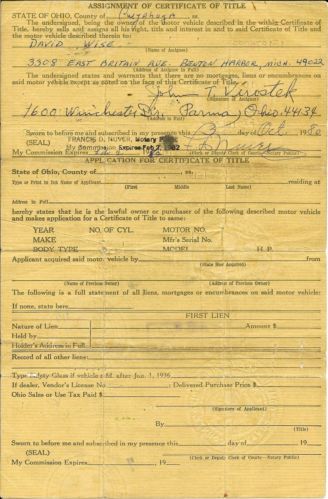 ASSIGNMENT OF CERTIFICATE OF TITLE
STATE OF OHIO, County of Cuyahoga ss:
The undersigned, being the owner of the motor vehicle described in the within Certificate of
Title, hereby sells and assigns all his right, title and interest in and to said Certificate of Title and
the motor vehicle described therein to:
DAVID WISE
(Name of Assignee)
3308 EAST BRITAIN AVE. BENTON HARBOR, MICH. 49022
(Address of Assignee in Full)
The undersigned states and warrants that there are no mortgages, liens or encumbrances on
said motor vehicle except as noted on the face of this Certificate of Title.
John T. Virostek
7600 Winchester Dr. Parma, Ohio 44134
(Address in Full)
Sworn to before me and subscribed in my presence this 3 day of Oct 1980
(SEAL) FRANCIS D. NUVER, Notary
My Commission Expires Feb 7, 1982
My Commission Expires
(Clerk or Deputy Clerk of Courts—Notary Public)
APPLICATION FOR CERTIFICATE OF TITLE
State of Ohio, County of ss:
Type or Print in Ink Name of Applicant residing at
(First) (Middle) (Last Name)
Address in Full
hereby states that he is the lawful owner or purchaser of the following described motor vehicle
and makes application for a Certificate of Title to same:
YEAR NO. OF CYL. MOTOR NO.
MAKE Mfr's Serial No.
BODY TYPE MODEL H.P.
Applicant acquired said motor vehicle by from
(State How Acquired)
(Name of Previous Owner) (Address of Previous Owner)
The following is a full statement of all liens, mortgages or encumbrances on said motor vehicle:
If none, state here
FIRST LIEN
Nature of Lien Amount $
Held by
Holder's Address in Full
Record of all other liens:
Type Safety Glass if vehicle mfd. after Jan. 1, 1936
If dealer, Vendor's License No. ; Delivered Purchase Price $
Ohio Sales or Use Tax Paid $
(Signature of Applicant)
By
(Title)
Sworn to before me and subscribed in my presence this day of 19
(SEAL)
(Clerk or Deputy Clerk of Courts—Notary Public)
My Commission Expires , 19